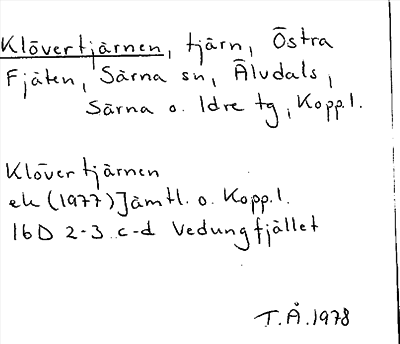 Klövertjärnen, tjärn, Östra
Fjäten, Särna sn, Älvdals,
Särna o. Idre tg, Kopp.l.
Klövertjärnen
ek (1977) Jämtl. o. Kopp.l.
16D 2-3 c-d Vedungfjället
T.Å.1978